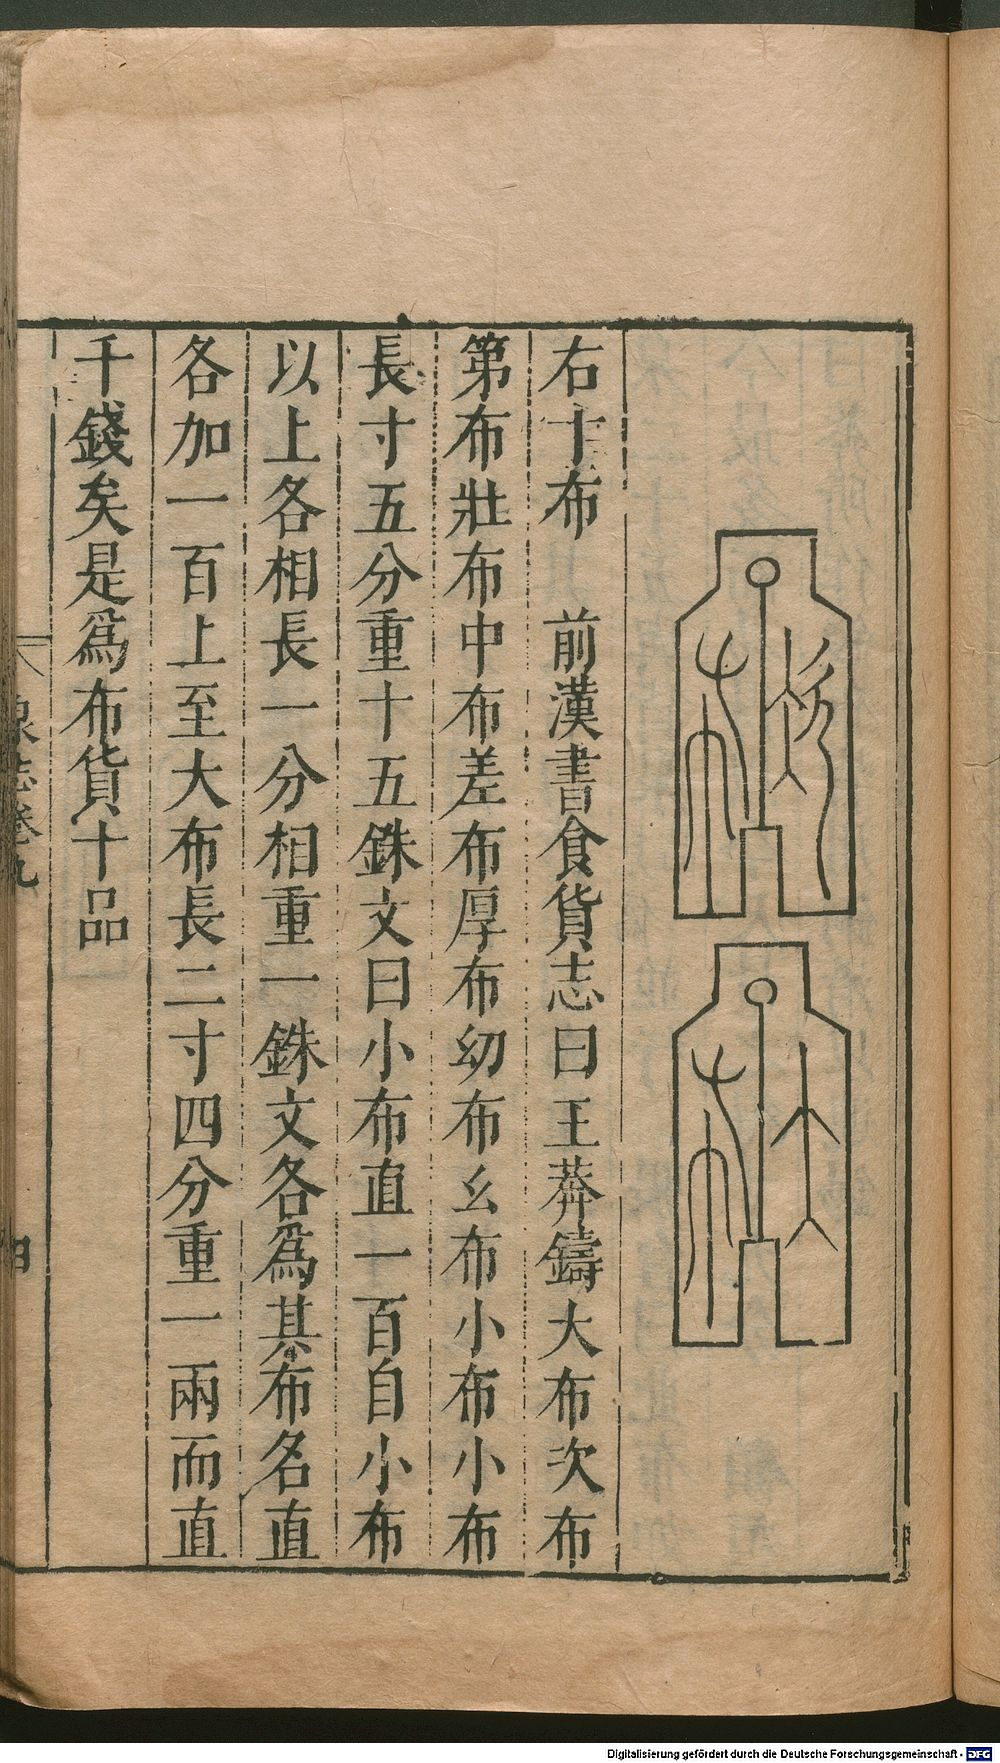 右十布　前漢書食貨志曰王莽鑄大布次布
第布壯布中布差布厚布幼布幺布小布小布
長寸五分重十五銖文曰小布直一百自小布
以上各相長一分相重一銖文各爲其布名直
各加一百上至大布長二寸四分重一兩而直
千錢矣是爲布貨十品
泉志卷九
四
Digitalisierung gefördert durch die Deutsche Forschungsgemeinschaft - DFG